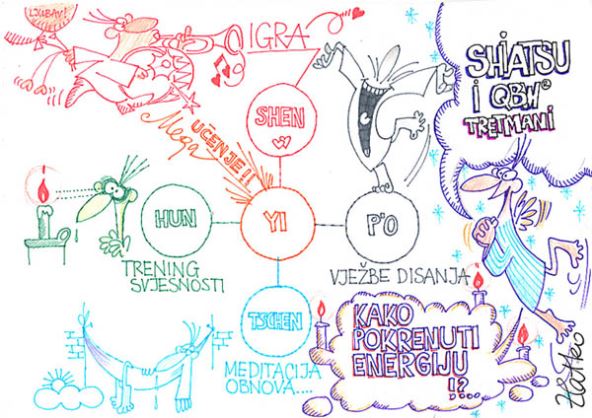 LJUBAV!
IGRA
SHIATSU
I QBW®
TRETMANI
SHEN
Mega
UČENJE!!
HUN
YI
P'O
TRENING
SVJESNOSTI
VJEŽBE DISANJA
TSCHEN
MEDITACIJA
OBNOVA....
KAKO
POKRENUTI
ENERGIJU
!?...
Zlatko